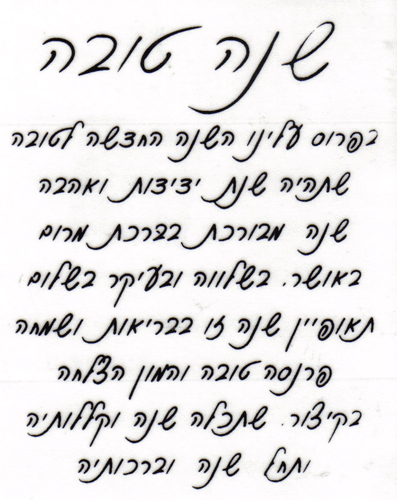 שנה טובה
בפרוס עלינו השנה החדשה לטובה
שתהיה שנת ידידות ואהבה
שנה מבורכת בברכת מרום
באושר. בשלווה ובעיקר בשלום
תאופיין שנה זו בבריאות ושמחה
פרנסה טובה והמון הצלחה
בקיצור. שתכלה שנה וקללותיה
ותחל שנה וברכותיה